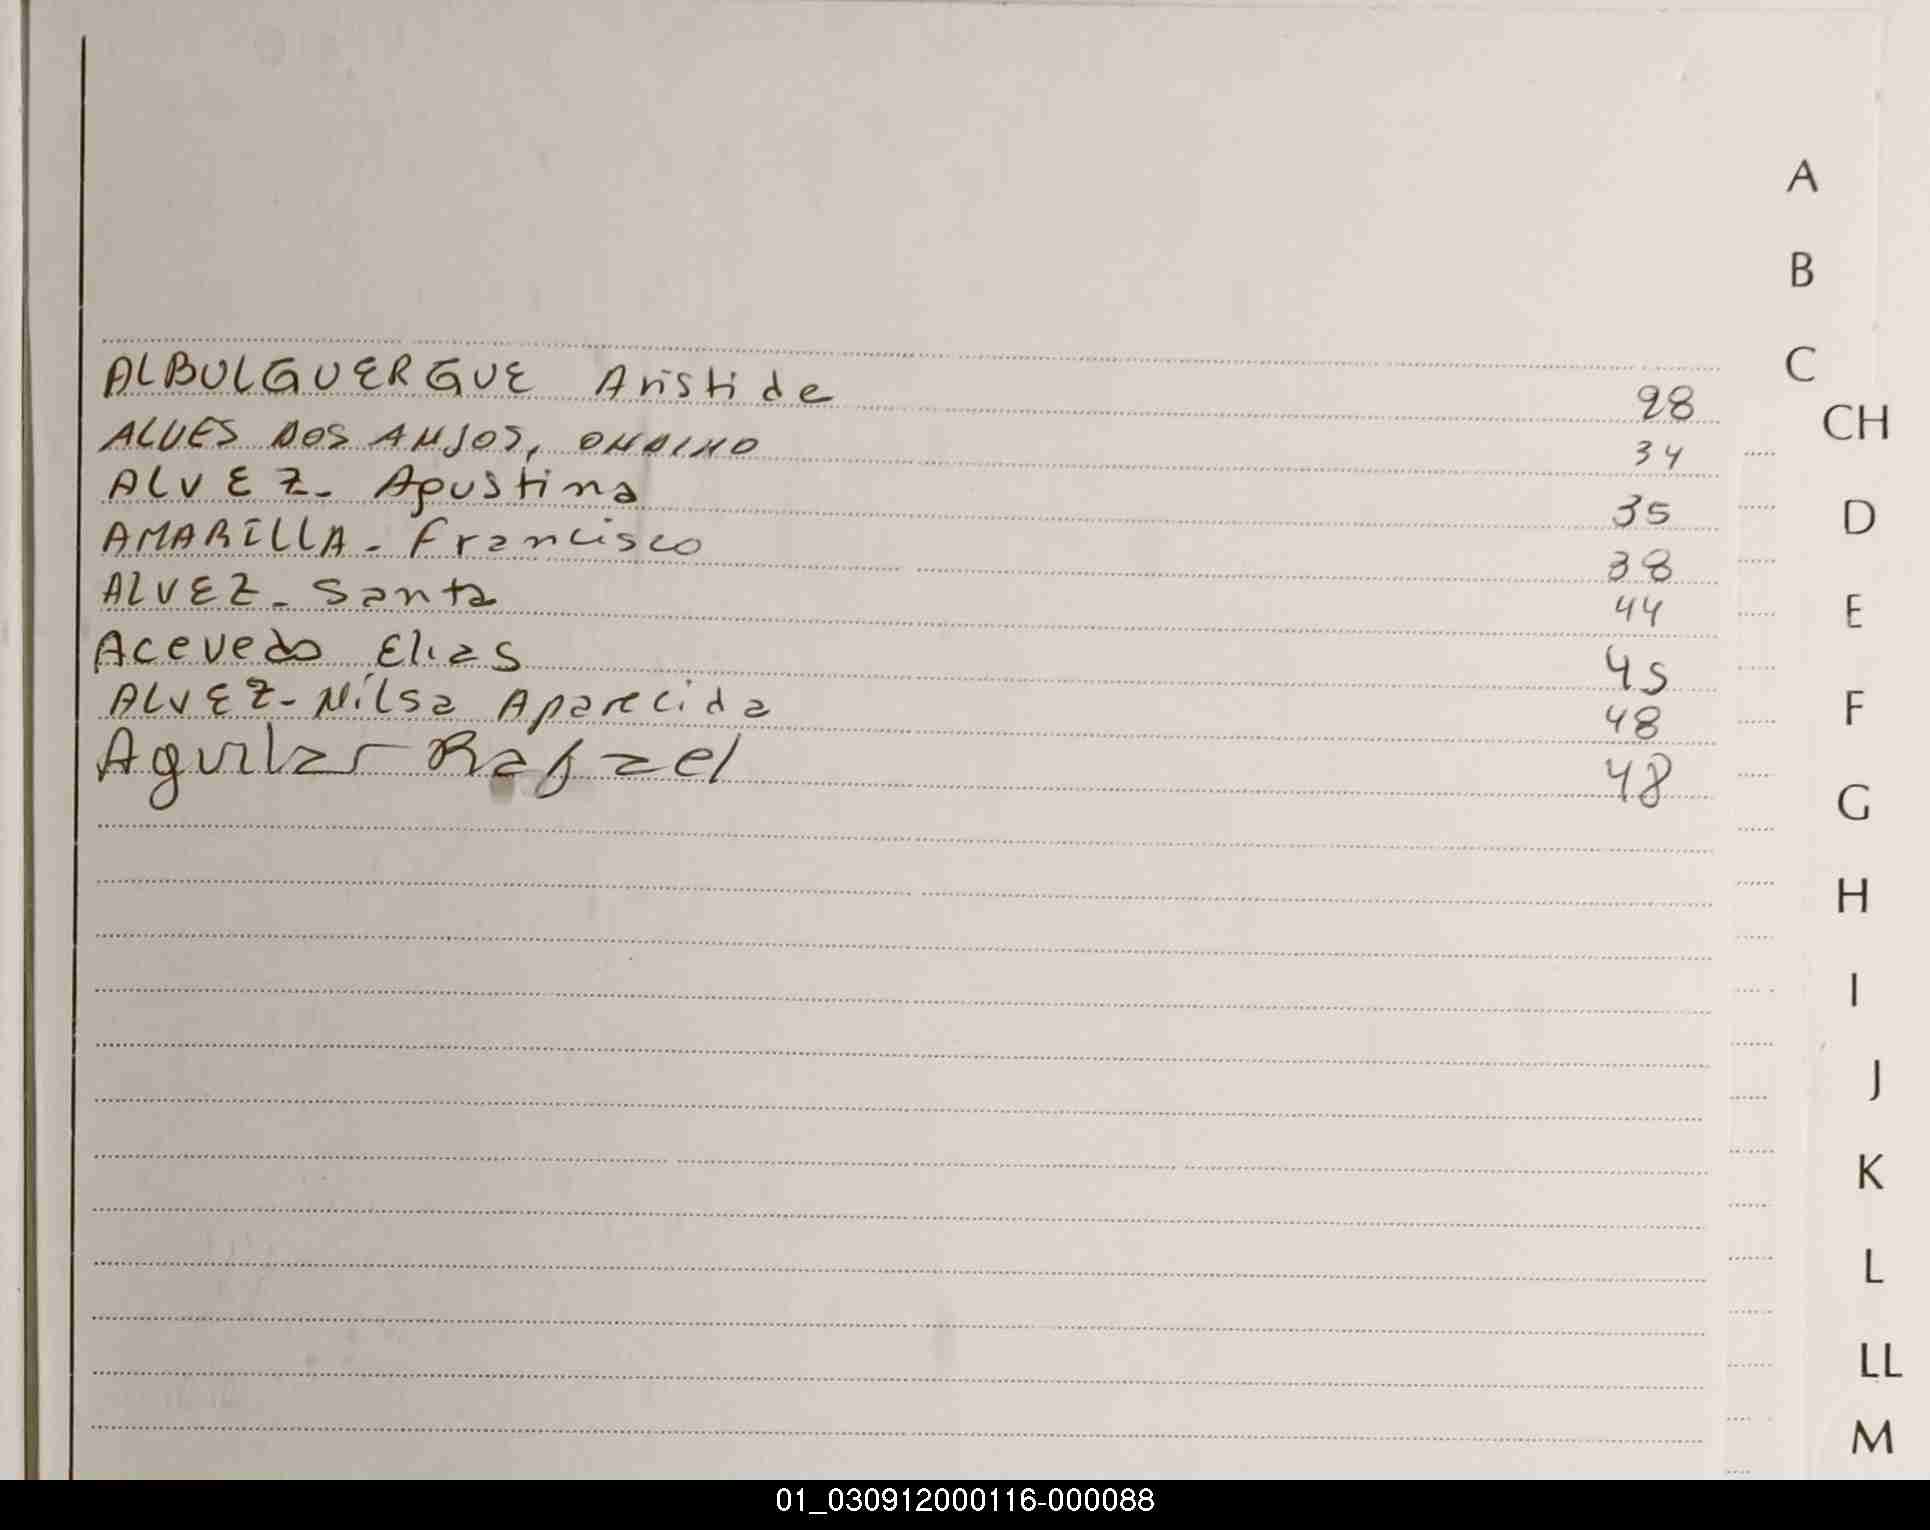 A
B
C
ALBULGUERGUE Aristide 28
CH
ALVES DOS ANJOS, ONDINO 34
ALVEZ- Agustina 35
D
AMARILLA- Francisco 38
ALVEZ- Santa 44
E
Acevedo Elias 45
ALVEZ- Nilsa Aparecida 48
F
Aguilar Rafael 48
G
H
I
J
K
L
LL
M
01_030912000116-000088